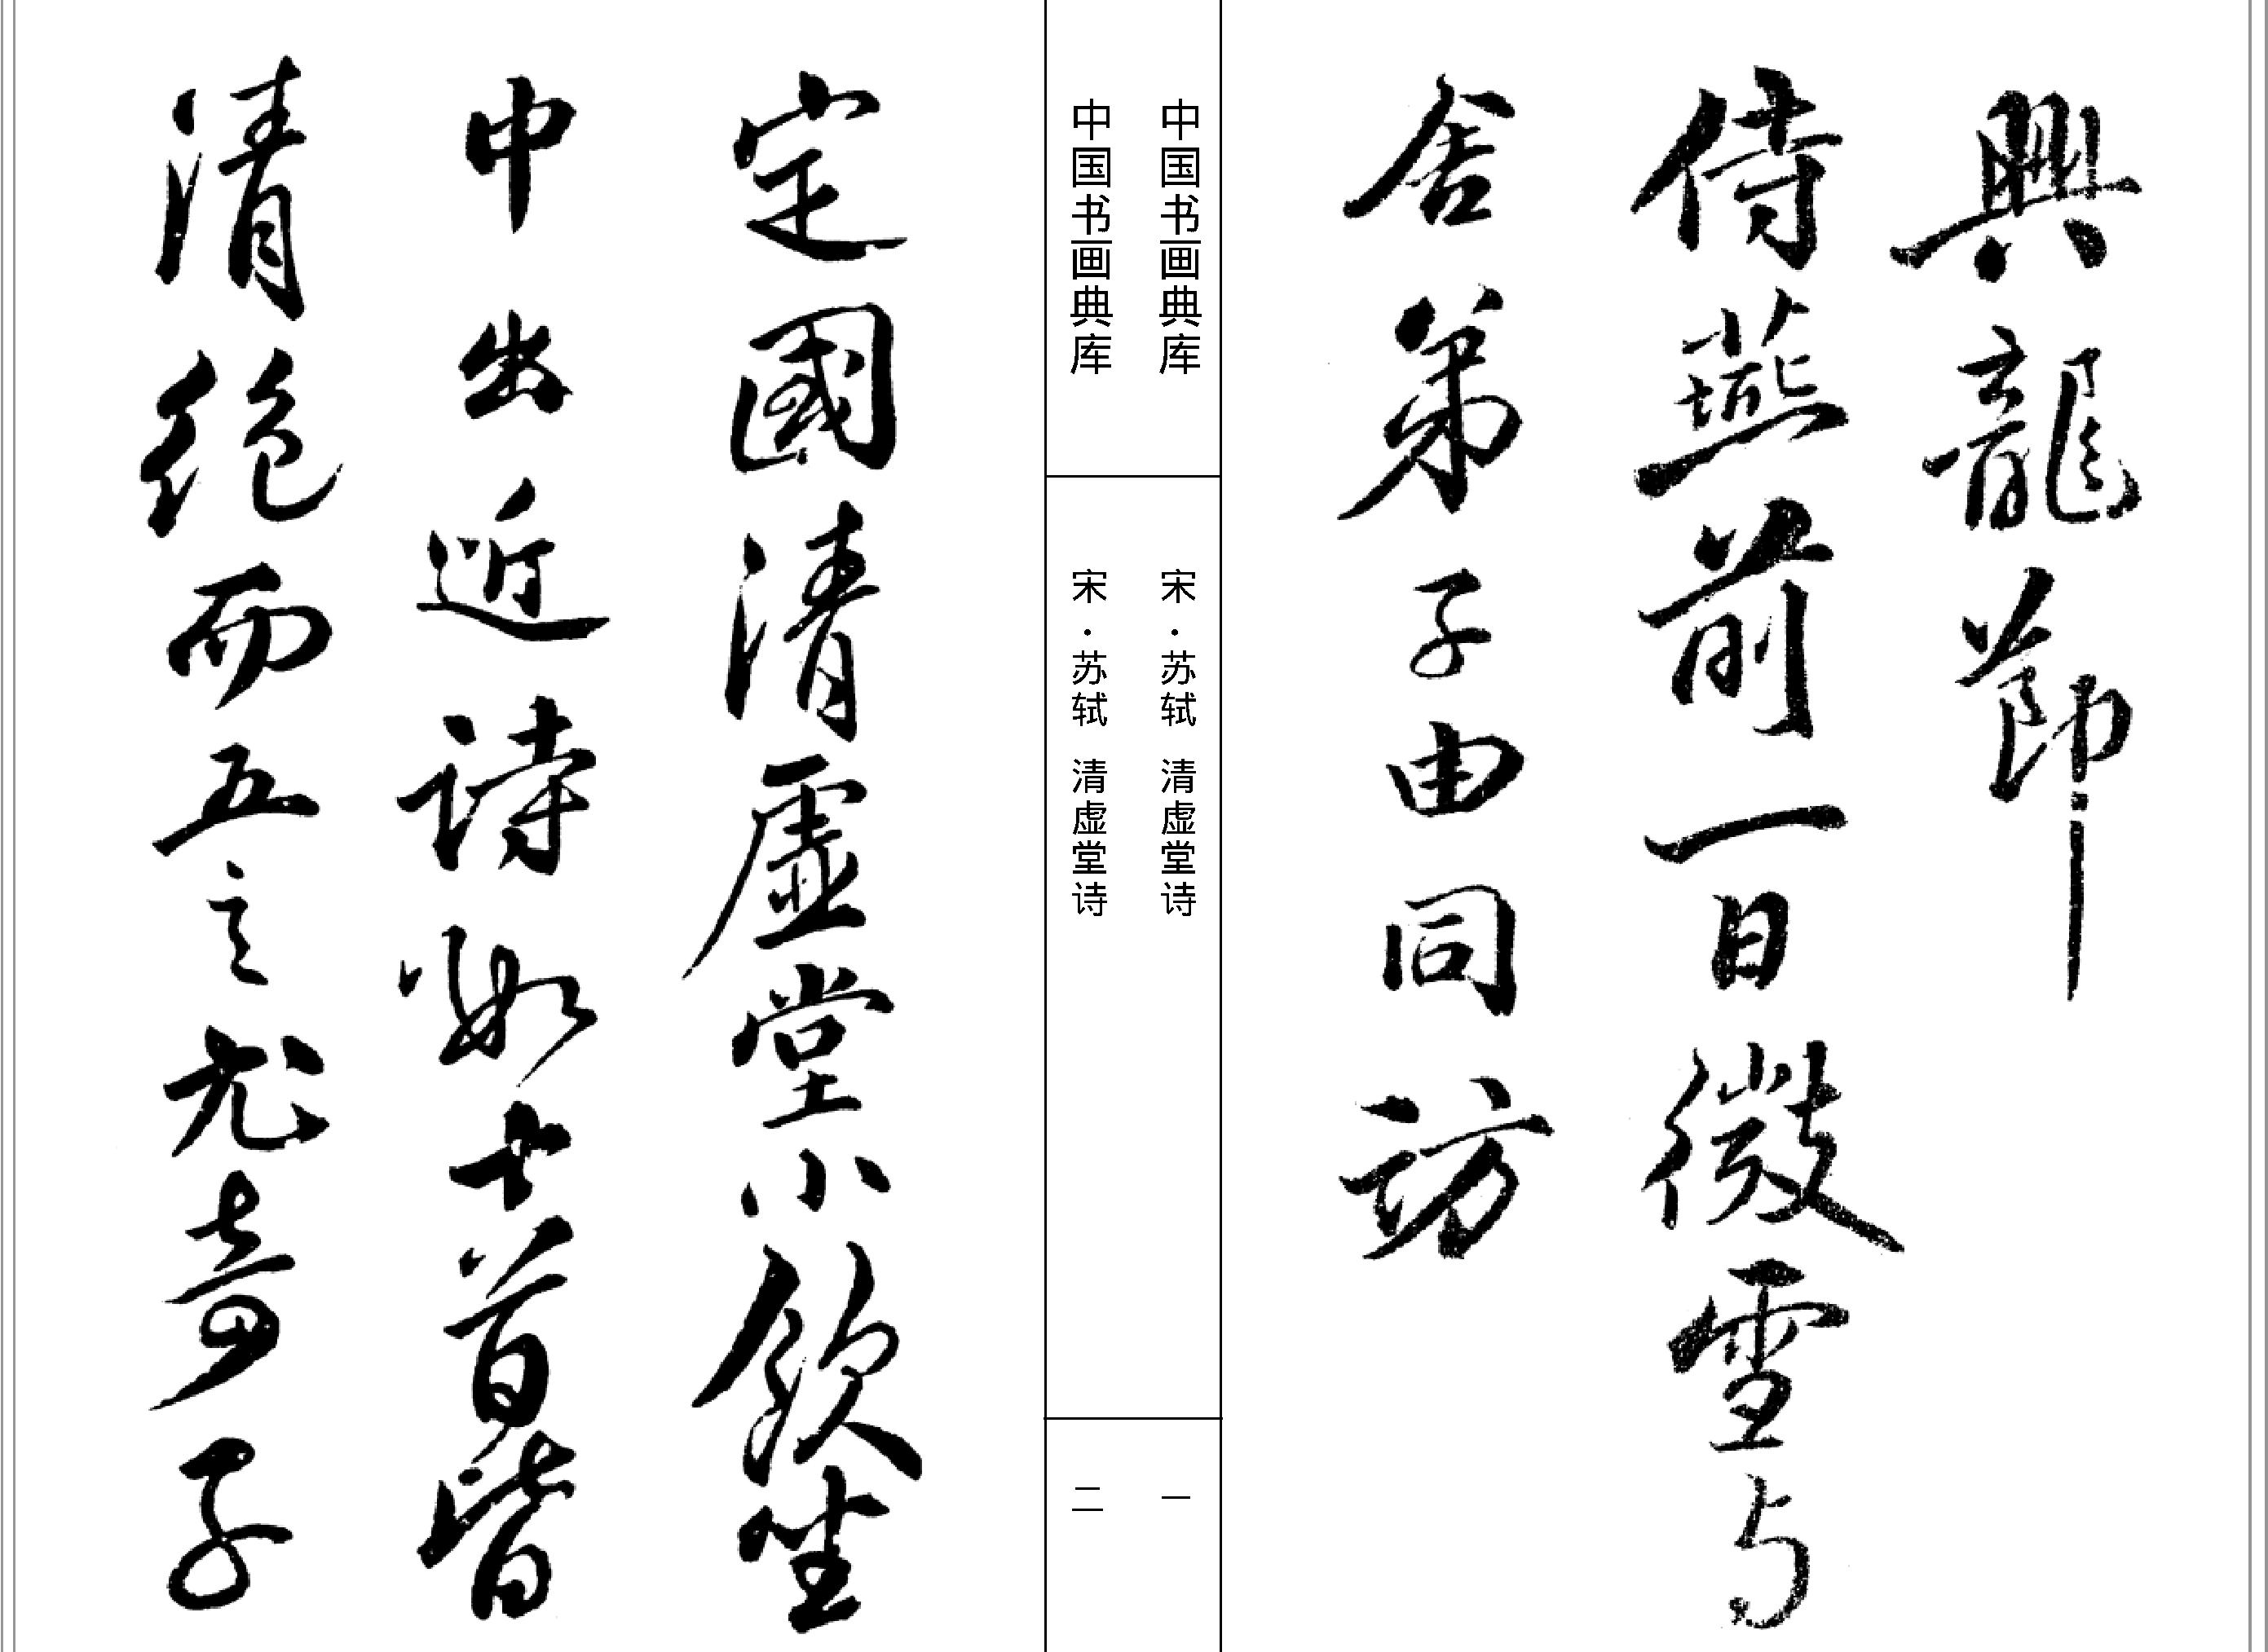 興龍節
侍燕前一日微雪与
舍弟子由同訪
中国书画典库
宋·苏轼 清虚堂诗
一
中国书画典库
宋·苏轼 清虚堂诗
二
定國清虛堂小飲坐
中出近詩數十首皆
清絕而五言尤奇子